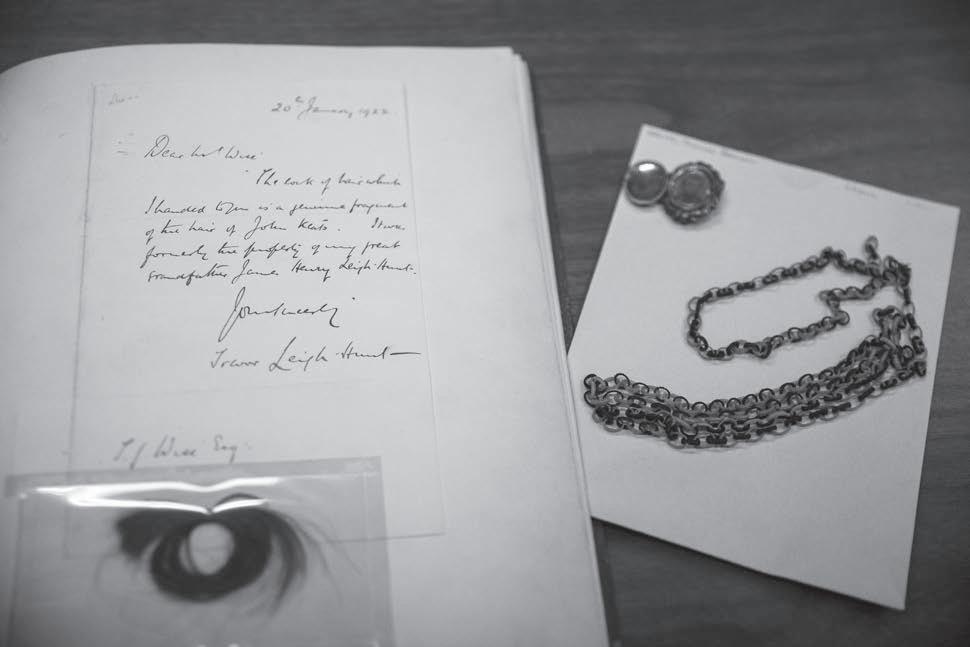 20th January 1922
Dear Mr Wise
The lock of hair which
I handed to you is a genuine fragment
of the hair of John Keats. It was
formerly the property of my great
grandfather James Henry Leigh-Hunt.
Yours sincerely
Trevor Leigh-Hunt
T J Wise Esq.